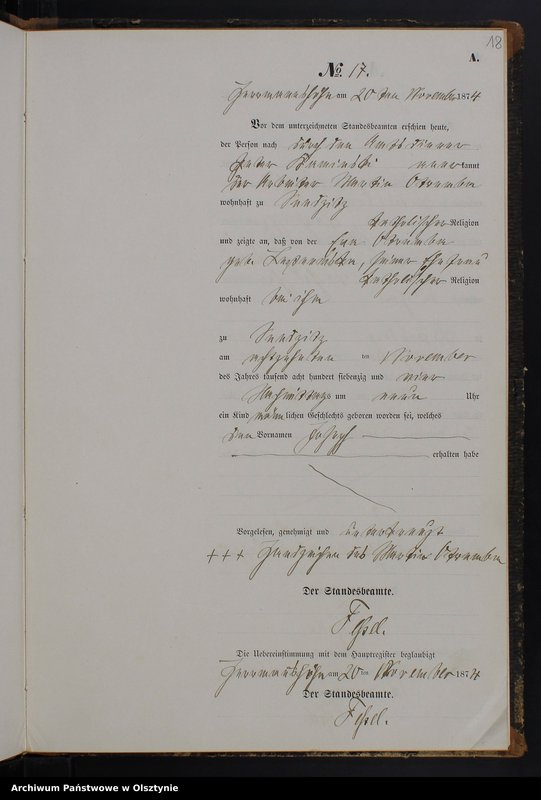 18
A.
No. 17.
Herrmannshöhe am 20ten November 1874
Vor dem unterzeichneten Standesbeamten erschien heute,
der Person nach durch den Amtsdiener
Peter Kaminski anerkannt
der Arbeiter Martin Otremba
wohnhaft zu
katholischer Religion
und zeigte an, daß von der Eva Otremba
geb. seiner Ehefrau
katholischer Religion
wohnhaft bei ihm
zu
am achtzehnten ten November
des Jahres tausend acht hundert siebenzig und vier
Nachmittags um neun Uhr
ein Kind männlichen Geschlechts geboren worden sei, welches
den Vornamen Joseph
erhalten habe
Vorgelesen, genehmigt und unterkreuzt
+++ Handzeichen des Martin Otremba
Der Standesbeamte.
Die Uebereinstimmung mit dem Hauptregister beglaubigt
Herrmannshöhe am 20ten November 1874
Der Standesbeamte.
Archiwum Państwowe w Olsztynie